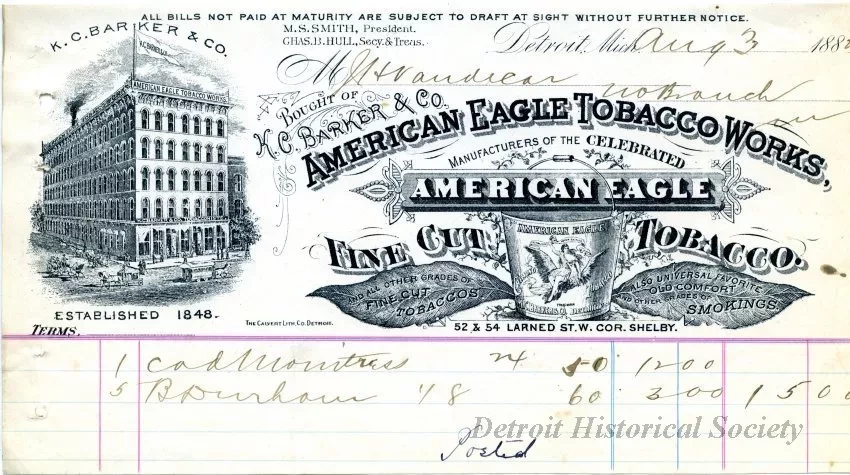 ALL BILLS NOT PAID AT MATURITY ARE SUBJECT TO DRAFT AT SIGHT WITHOUT FURTHER NOTICE.
K.C. BARKER & CO.
M.S. SMITH, President.
CHAS. B. HULL, Secy. & Treas.
Detroit, Mich. Aug 3 188
M
BOUGHT OF
K.C. BARKER & CO.
AMERICAN EAGLE TOBACCO WORKS,
AMERICAN EAGLE TOBACCO WORKS
MANUFACTURERS OF THE CELEBRATED
AMERICAN EAGLE
FINE CUT TOBACCO.
AMERICAN EAGLE
AND ALL OTHER GRADES OF
FINE CUT
TOBACCOS
ALSO UNIVERSAL FAVORITE
OLD COMFORT
AND OTHER GRADES OF
SMOKINGS
ESTABLISHED 1848.
THE CALVERT LITH. CO. DETROIT.
52 & 54 LARNED ST. W. COR. SHELBY.
TERMS.
1 24 50 12 00
5 B Durham 48 60 3 00 15 00
Posted
Detroit Historical Society